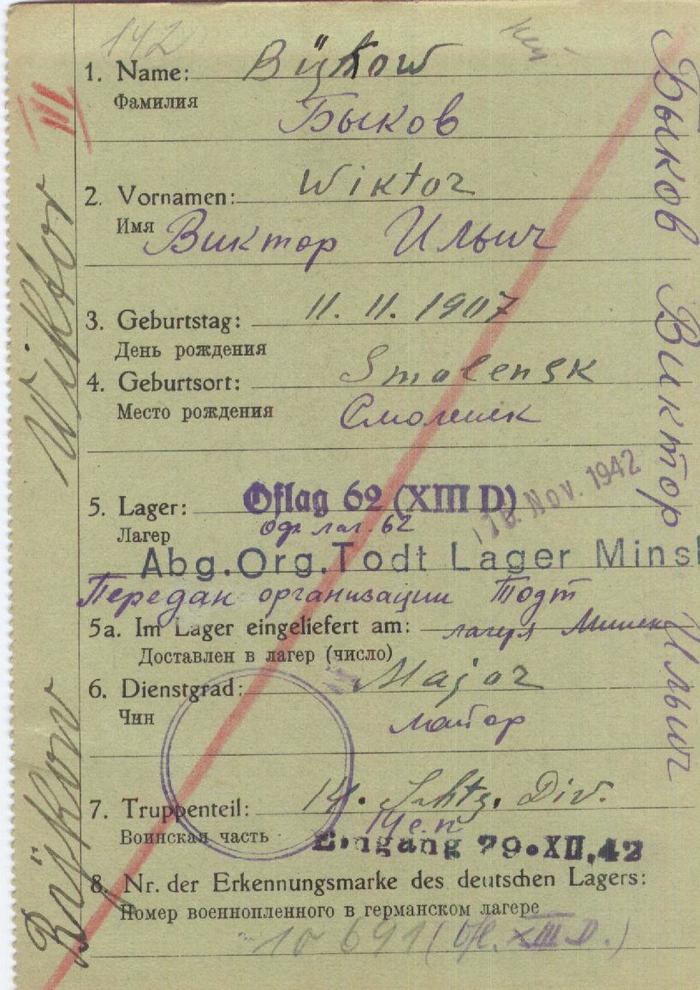 142
III
1. Name: BüKow
Фамилия
Быков
2. Vornamen: WiKtor
Имя Виктор Ильич
3. Geburtstag: 11. 11. 1907
День рождения
4. Geburtsort: SmolensK
Место рождения Смоленск
5. Lager: Oflag 62 (XIII D)
Лагер Офлаг.62
Nov. 1942
Abg.Org.Todt Lager Minsk
Передан организации Тодт
5a. Im Lager eingeliefert am: лагеря Минск
Доставлен в лагер (число)
6. Dienstgrad: Major
Чин майор
7. Truppenteil: 14. Schtz. Div.
Воинская часть
Eingang 29.XII.42
8. Nr. der Erkennungsmarke des deutschen Lagers:
Номер военнопленного в германском лагере
10 691 (Ofl. XIII D.)
Büjkow Wiktor
Быков Виктор Ильич